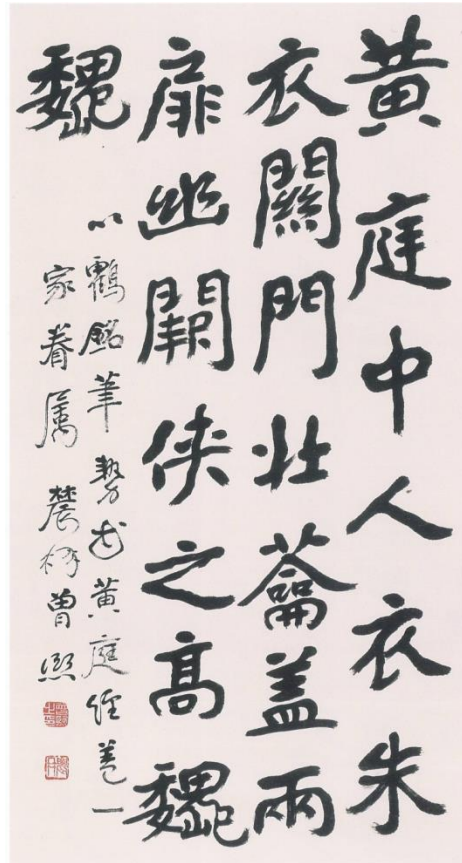 黄庭中人衣朱
衣關門壯蘥盖兩
扉幽闕俠之高巍
巍
以鸖銘筆勢書黄庭經盖一
家眷属 農髯曾熙